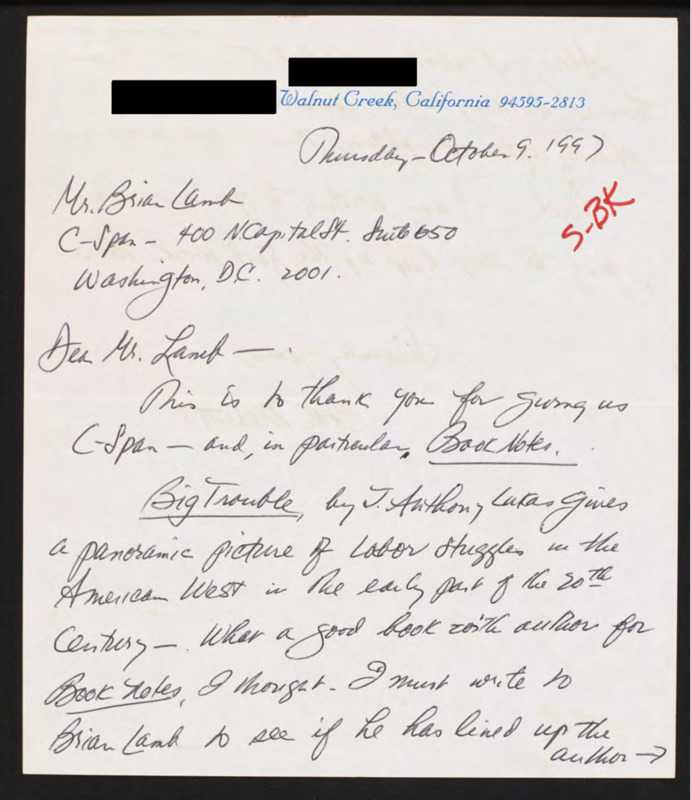 Walnut Creek, California 94595-2813
Thursday - October 9. 1997
S-BK
Mr. Brian Lamb
C-Span - 400 N Capital St. Suite 650
Washington, D.C. 2001.
Dear Mr. Lamb — .
This is to thank you for giving us
C-Span — and, in particular, Book Notes.
Big Trouble, by J. Anthony Lukas gives
a panoramic picture of labor struggles in the
American West in the early part of the 20th
Century —. What a good book with author for
Book Notes, I thought - I must write to
Brian Lamb to see if he has lined up the
author →